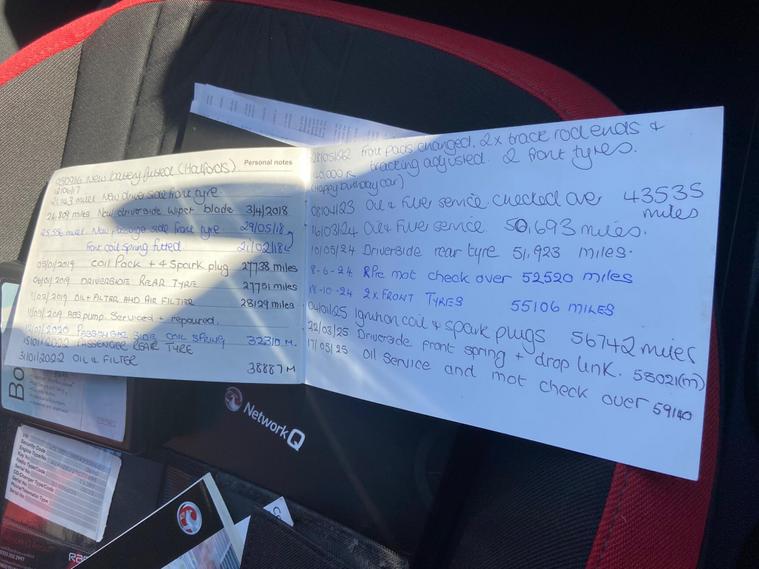 New battery fitted (Halfords) Personal notes
21,143 miles New driver side front tyre
New driverside wiper blade 3/4/2018
New passenge side front tyre 29/05/18
Front coil spring fitted 21/02/18
05/01/2019 COIL PACK + 4 Spark plug 27738 miles
DRIVERSIDE REAR TYRE 27751 miles
OIL + FILTER AND AIR FILTER 28129 miles
ABS pump Serviced + repaired.
2020 PASSENGER SIDE COIL SPRING 32310 M.
PASSENGER REAR TYRE
31/01/2022 OIL & FILTER 38887 M
front pads changed, 2x track rod ends &
tracking adjusted 2 front tyres.
(Happy birthday car)
08/04/23 Oil & Filter service checked over 43535
miles
16/03/24 Oil & Filter service 50,693 miles.
10/05/24 Driverside rear tyre 51,923 miles.
8-6-24 mot check over 52520 miles
18-10-24 2x FRONT TYRES 55106 MILES
04/01/25 Ignition coil & spark plugs 56742 miles
22/03/25 Driverside front spring + drop link. 58021(m)
17/05/25 Oil Service and mot check over 59140
Network Q